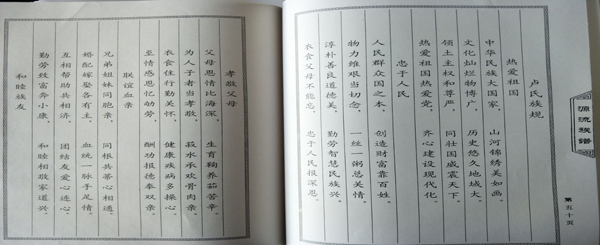 源流族谱
第五十页
卢氏族规
热爱祖国
中华民族大国家。 山河锦绣美如画。
文化灿烂物博广。 历史悠久地域大。
领土主权和尊严。 同壮国威震天下。
热爱祖国热爱党。 齐心建设现代化。
忠于人民
人民群众国之本。 创造财富靠百姓。
物力维艰当切念。 一丝一粥总关情。
淳朴善良道德美。 勤劳智慧民族兴。
衣食父母不能忘。 忠于人民报深恩。
孝敬父母
父母恩情比海深。 生育鞠养茹苦辛。
为人子者当孝敬。 菽水承欢骨肉亲。
衣食住行勤关怀。 健康疾病多操心。
至情感恩忆劬劳。 酬功报德奉双亲。
联谊血亲
兄弟姐妹同胞亲。 同根共蒂心相通。
婚配嫁娶各有主。 血统一脉手足情。
互相帮助共相济。 团结友爱心连心。
勤劳致富奔小康。 和睦相敬家道兴。
和睦族友